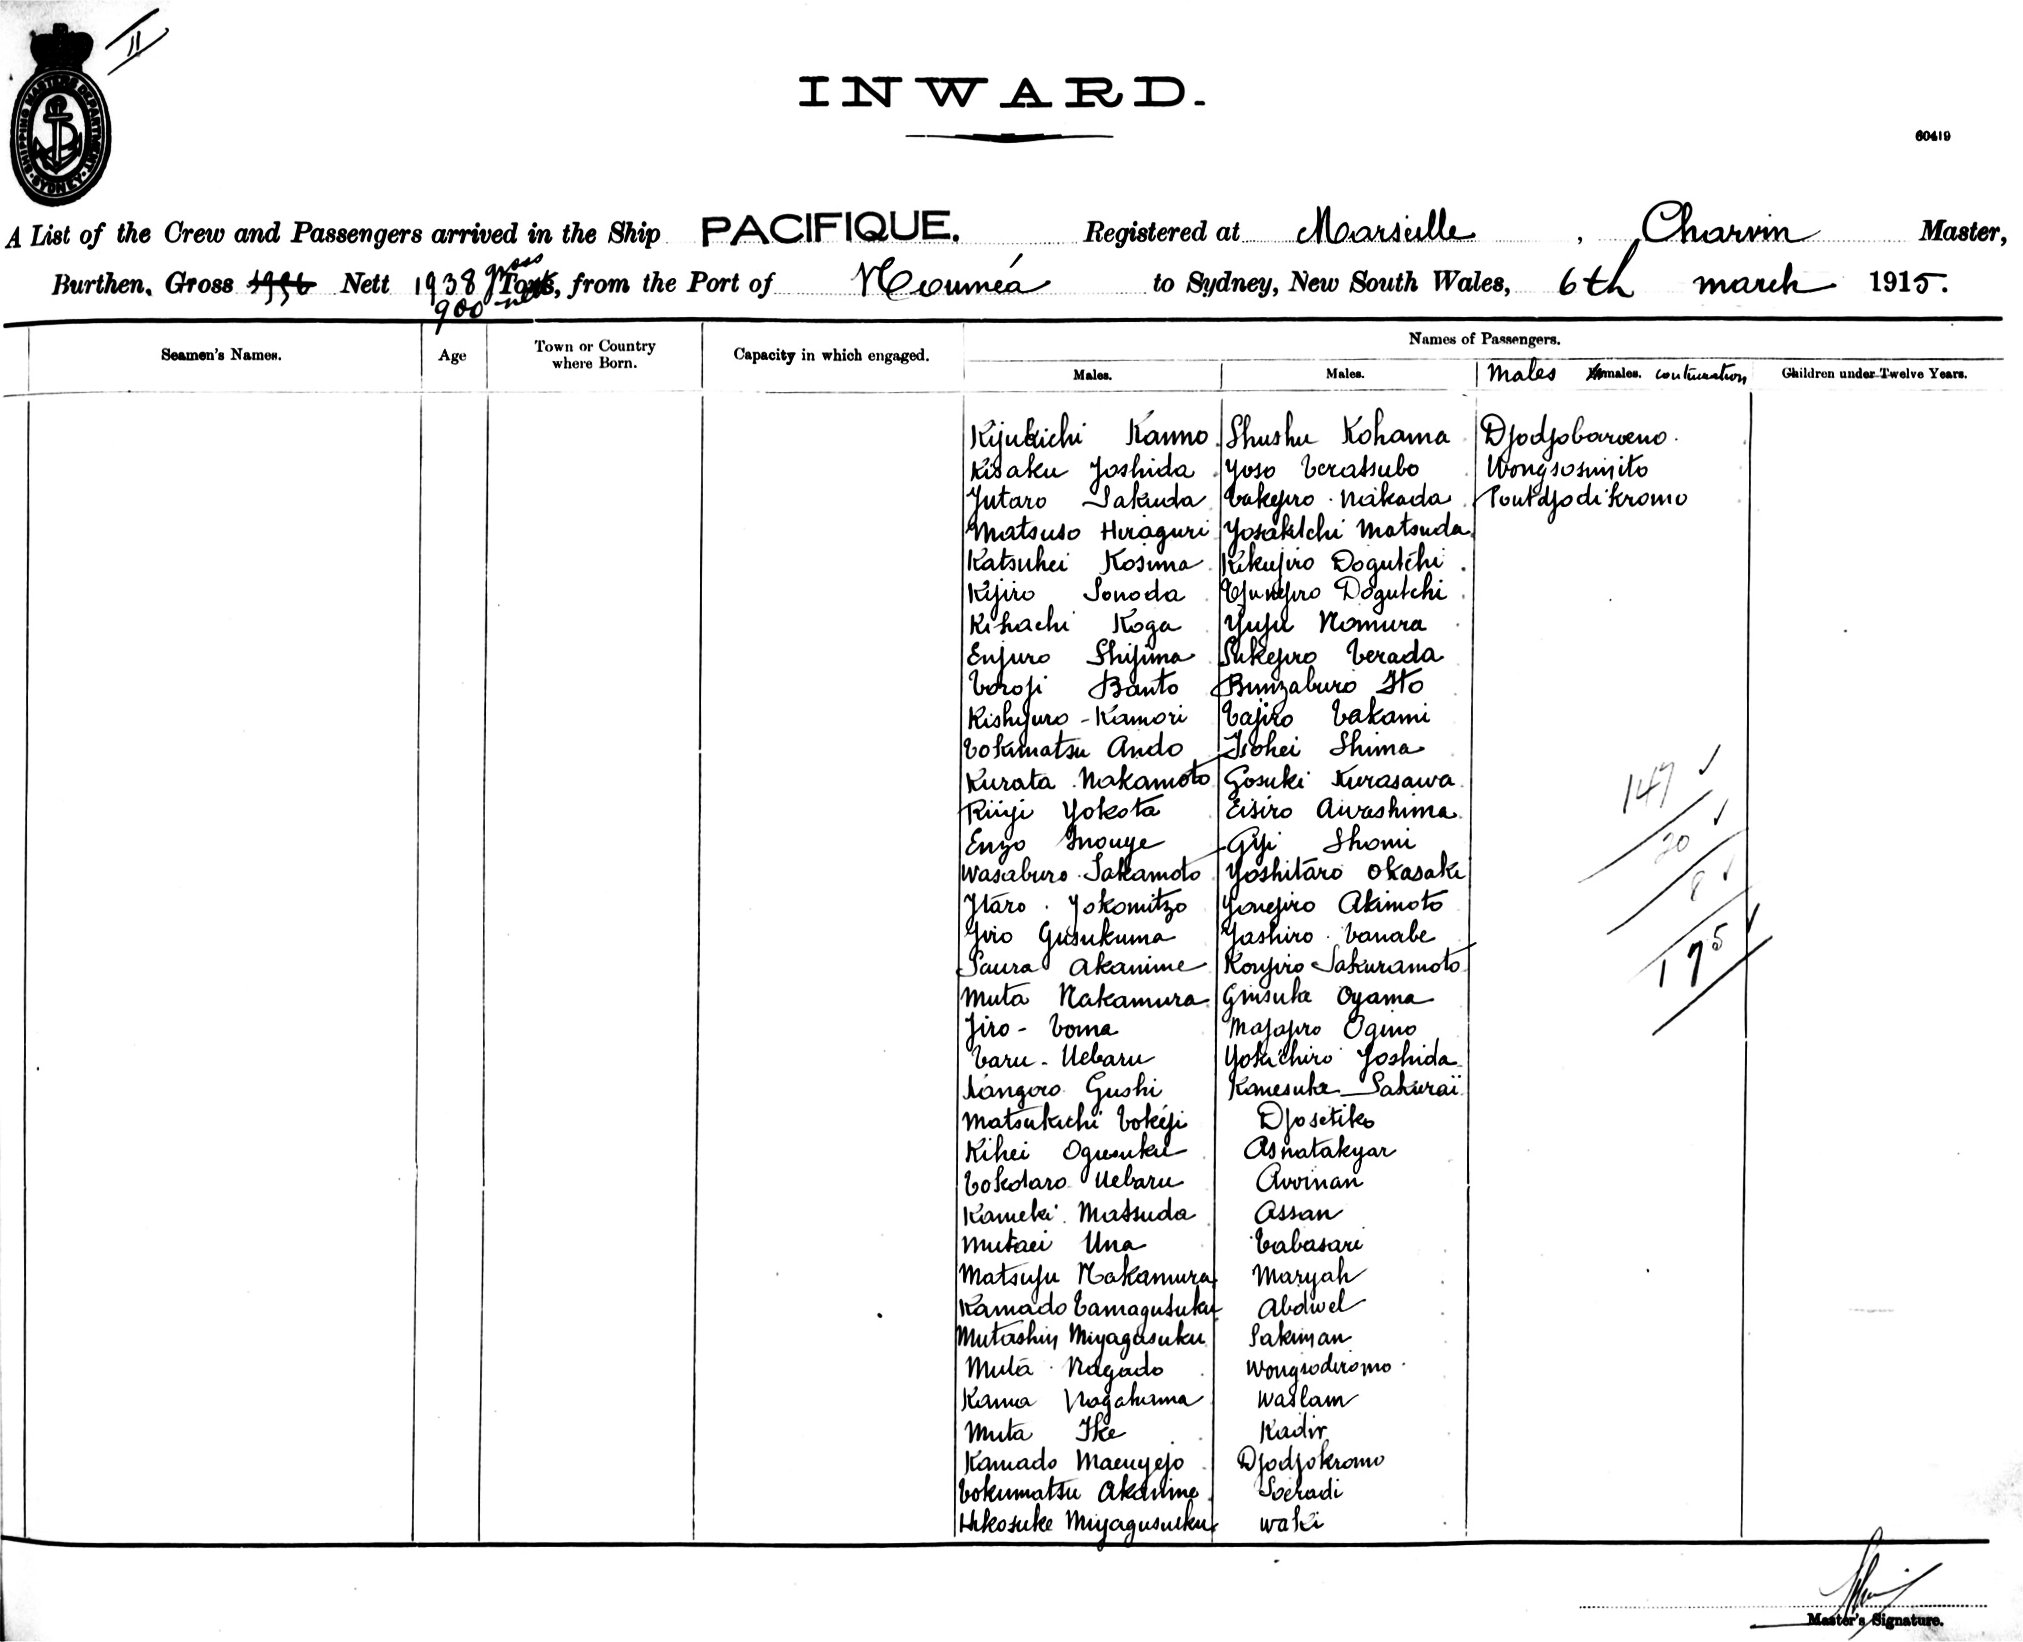 II
SHIPPING MASTERS DEPARTMENT SYDNEY
INWARD.
60419
A List of the Crew and Passengers arrived in the Ship PACIFIQUE. Registered at Marseille, Charvin Master,
Burthen, Gross 1936 Nett 1938 gross Tons, from the Port of Nouméa to Sydney, New South Wales, 6th march 1915.
900 nett
Seamen's Names.
Age
Town or Country
where Born.
Capacity in which engaged.
Names of Passengers.
Males.
Males.
Males Females. continuation
Children under Twelve Years.
Kijukichi Kanno
Kisaku Yoshida
Yutaro Sakuda
Matsuso Hiraguri
Katsuhei Kosima
Kijiro Sonoda
Kihachi Koga
Enjuro Shijima
Toroji Banto
Kishijuro - Kamori
Tokimatsu Ando
Kurata Nakamoto
Riiji Yokota
Enzo Inouye
Wasaburo Sakamoto
Ytaro Yokomitzo
Jiro Gusukuma
Saura Akanime
Muta Nakamura
Jiro - Toma
Taru - Uebaru
Kangoro Gushi
Matsukichi Tokéji
Kihei Ogusuku
Tokotaro Uebaru
Kameki Matsuda
Mutaei Una
Matsuju Nakamura
Kamado Tamagusuku
Mutashin Miyagusuku
Muta Nagado
Kama Nagahama
Muta Ike
Kamado Maeuyejo
Tokumatsu Akanime
Hikosuke Miyagusuku
Shushu Kohama
Yoso Teratsubo
Takejiro Nakada
Yosakichi Matsuda
Kikujiro Dogutchi
Tjunejiro Dogutchi
Yuju Nomura
Sukejiro Terada
Bunzaburo Ito
Tajiro Takami
Isohei Shima
Gosuki Kurasawa
Eisiro Awashima
Giji Shomi
Yoshitaro Okasaki
Yonejiro Akimoto
Yashiro Tanabe
Konjiro Sakuramoto
Ginsuke Oyama
Majajiro Ogino
Yokichiro Yoshida
Kanesuke Sakuraï
Djosetiko
Asnatakyar
Avoinan
Assan
Tabasari
Maryah
Abdwel
Sakiman
Wongsodiromo
Waslam
Kadir
Djodjokromo
Soeradi
Waki
Djodjobaroeno
Wongsosmito
Poutdjodikromo
147
20
8
175
Master's Signature.